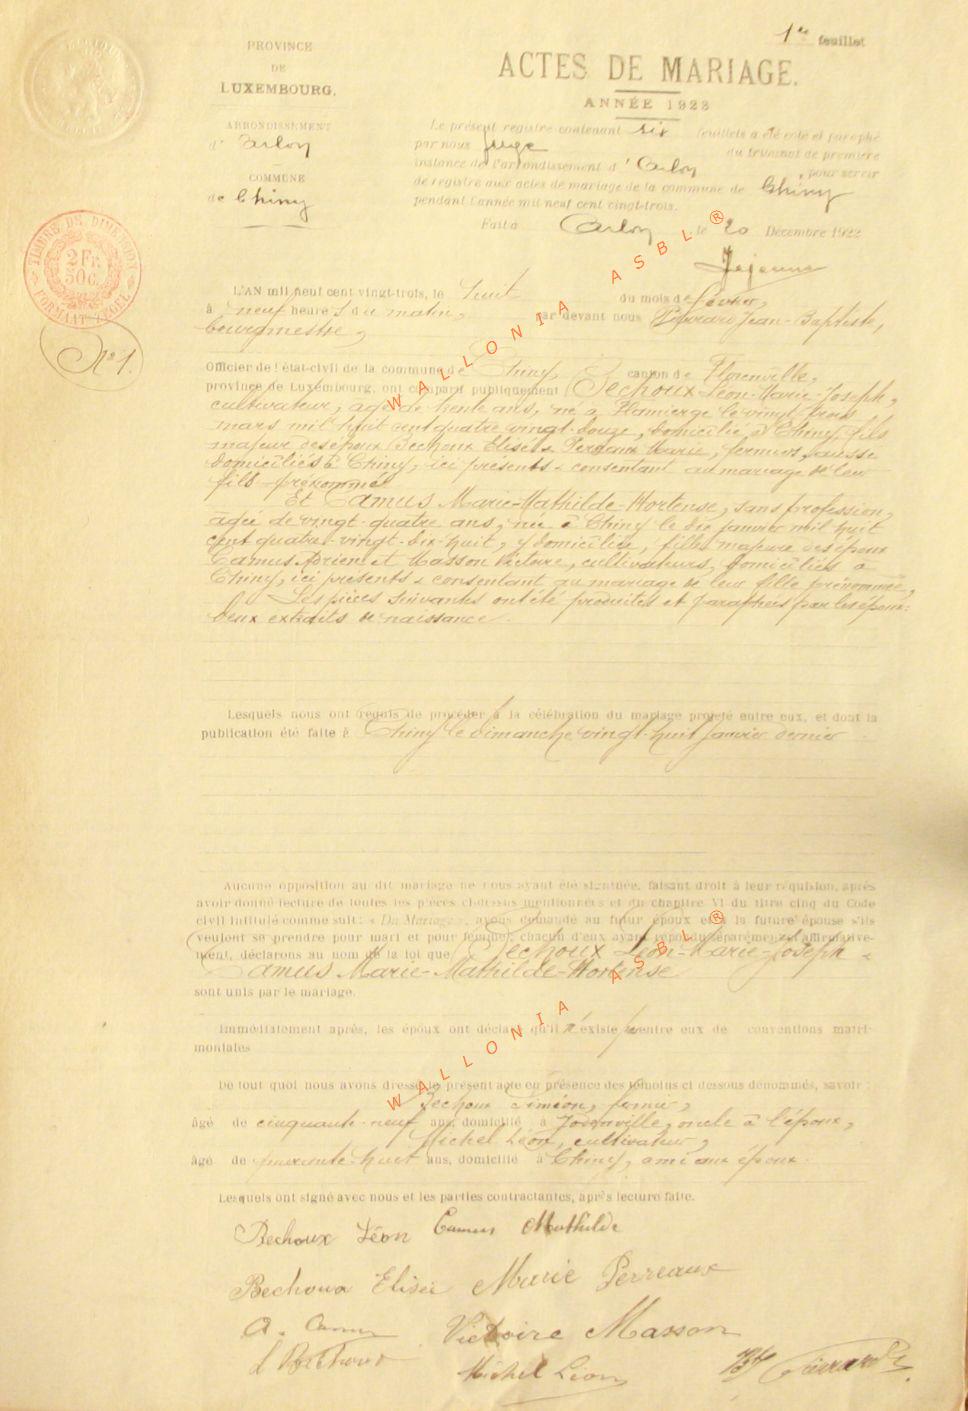 1er feuillet
PROVINCE
DE
LUXEMBOURG.
ARRONDISSEMENT
d'Arlon
COMMUNE
de Chiny
ACTES DE MARIAGE.
ANNÉE 1923
Le présent registre contenant six feuillets a été coté et paraphé
par nous Juge du tribunal de première
instance de l'arrondissement d'Arlon pour servir
de registre aux actes de mariage de la commune de Chiny
pendant l'année mil neuf cent vingt-trois.
Fait à Arlon le 20 Décembre 1922
Lejeune
TIMBRE DE DIMENSION
2 FR.
50 C.
FORMAAT ZEGEL
N° 1.
L'AN mil neuf cent vingt-trois, le huit du mois de février,
à neuf heures du matin, par devant nous Pierrard Jean-Baptiste,
bourgmestre,
Officier de l'état-civil de la commune de Chiny, canton de Florenville,
province de Luxembourg, ont comparu publiquement Bechoux Léon-Marie-Joseph,
cultivateur, âgé de trente ans, né à Flamierge le vingt-trois
mars mil huit cent quatre vingt-douze, domicilié à Chiny, fils
majeur des époux Bechoux Elisée & Perreaux Marie, fermiers, aussi
domiciliés à Chiny, ici présents & consentant au mariage de leur
fils prénommé
Et Camus Marie-Mathilde-Hortense, sans profession,
âgée de vingt-quatre ans, née à Chiny le dix janvier mil huit
cent quatre-vingt-dix-huit, y domiciliée, fille majeure des époux
Camus Adrien et Masson Victoire, cultivateurs, domiciliés à
Chiny, ici présents & consentant au mariage de leur fille prénommée,
Les pièces suivantes ont été produites et paraphées par les époux:
Deux extraits de naissance.
Lesquels nous ont requis de procéder à la célébration du mariage projeté entre eux, et dont la
publication été faite à Chiny le dimanche vingt-huit janvier dernier.
Aucune opposition au dit mariage ne nous ayant été signifiée, faisant droit à leur réquision, après
avoir donné lecture de toutes les pièces ci-dessus mentionnées et du chapitre VI du titre cinq du Code
civil intitulé comme suit: « Du Mariage », avons demandé au futur époux et à la future épouse s'ils
veulent se prendre pour mari et pour femme; chacun d'eux ayant répondu séparément et affirmative-
ment, déclarons au nom de la loi que Bechoux Léon-Marie-Joseph &
Camus Marie-Mathilde-Hortense
sont unis par le mariage.
Immédiatement après, les époux ont déclaré qu'il n'existe pas entre eux de conventions matri-
moniales
De tout quoi nous avons dressé le présent acte en présence des témoins ci dessous dénommés, savoir:
Bechoux Siméon, fermier,
âgé de cinquante-neuf ans, domicilié à oncle à l'époux,
Michel Léon, cultivateur,
âgé de huit ans, domicilié à Chiny, ami aux époux.
Lesquels ont signé avec nous et les parties contractantes, après lecture faite.
Bechoux Léon Camus Mathilde
Bechoux Elisée Marie Perreaux
A. Camus Victoire Masson
Bechoux Michel Léon Bte Pierrard
WALLONIA ASBL ®
WALLONIA ASBL ®